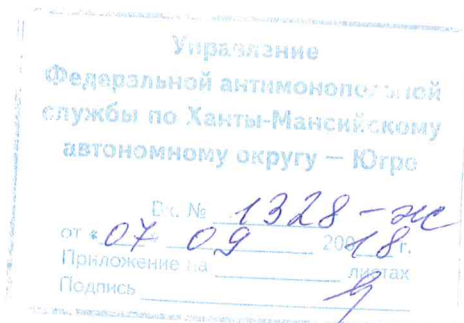 Управление
Федеральной антимонопольной
службы по Ханты-Мансийскому
автономному округу – Югре
Вх. № 1328-ж
от «07 09 200 18 г.
Приложение на ______ листах
Подпись